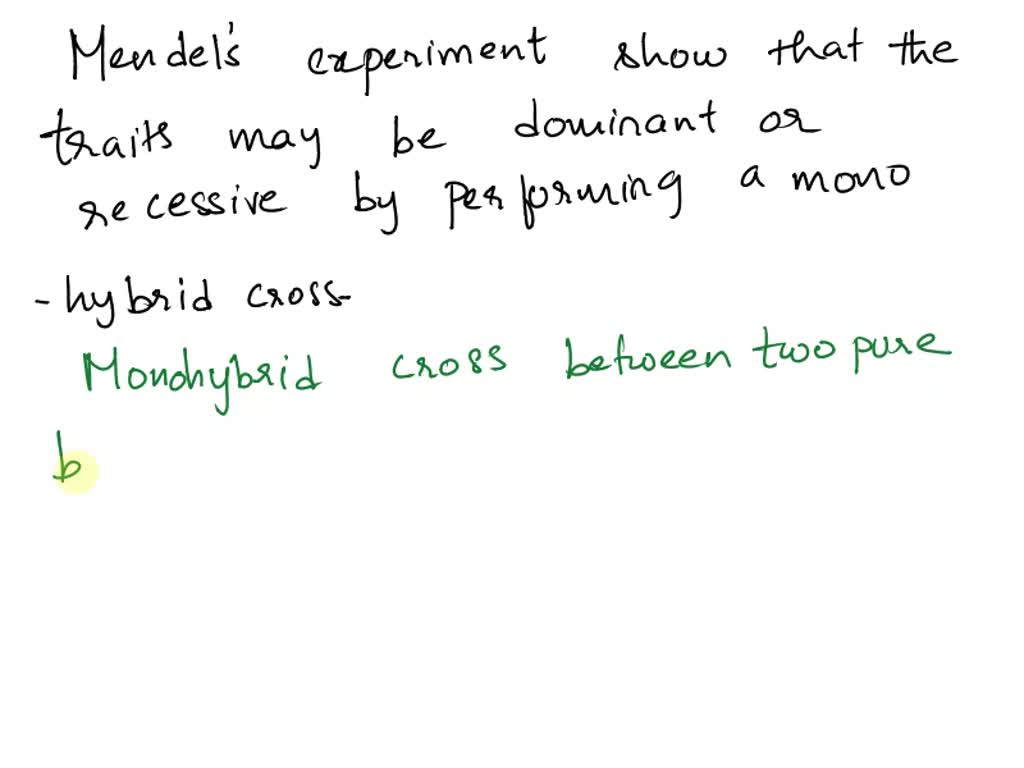 Mendel's experiment show that the
traits may be dominant or
recessive by performing a mono
-hybrid cross-
Monohybrid cross between two pure
b